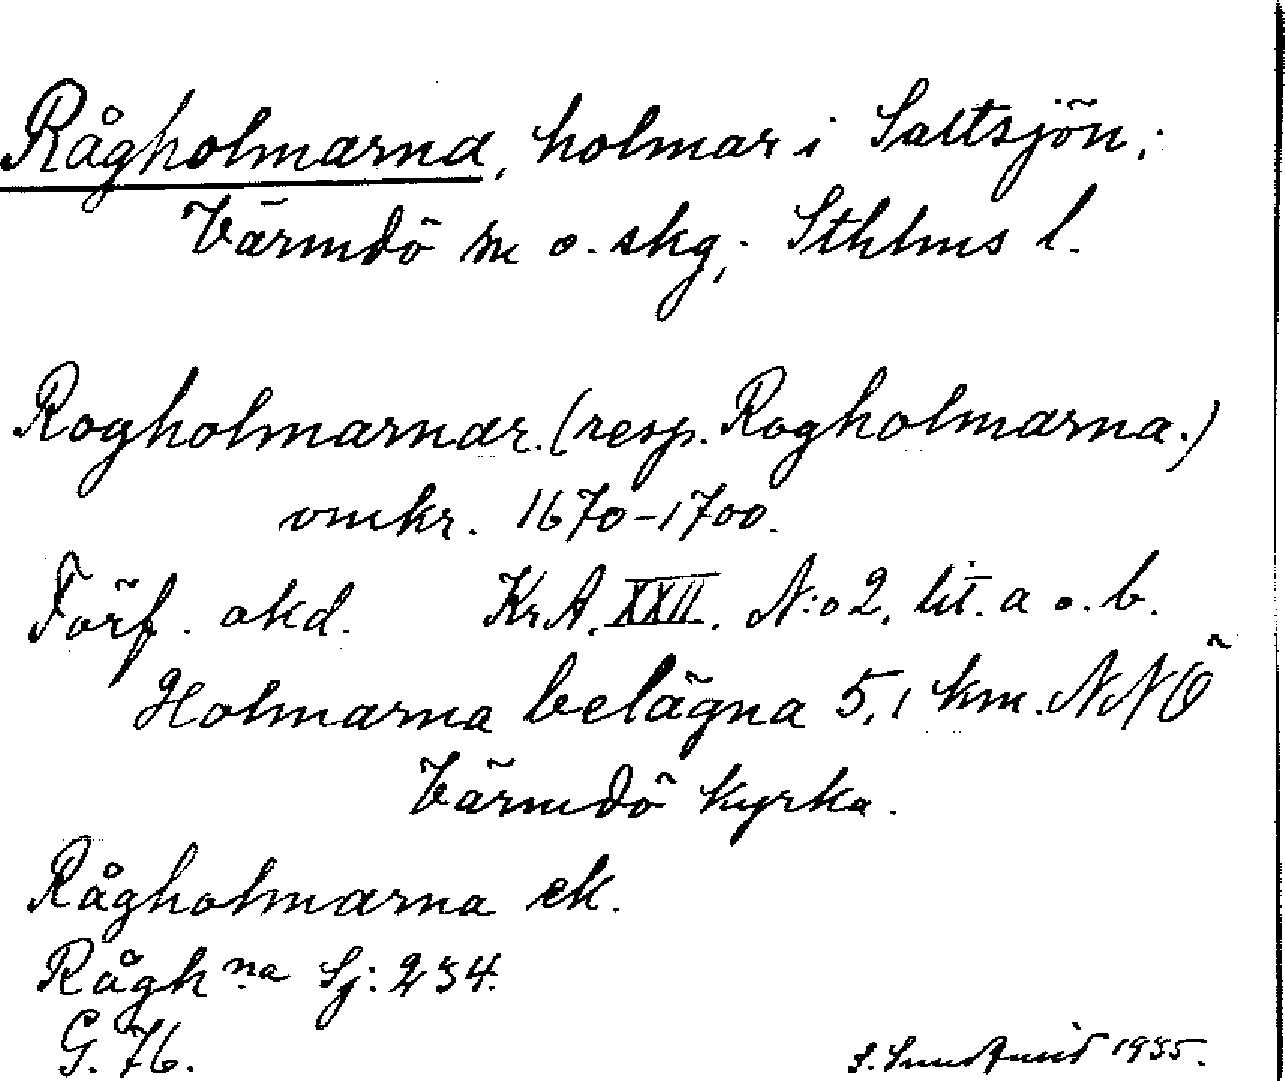 Rågholmarna, holmar i Saltsjön;
Värmdö sn o. skg; Sthlms l.
Rogholmarnar. (resp. Rogholmarna.)
omkr. 1670-1700.
Förf. okd. Kr.A. XXII. N:o 2. lit. a o. b.
Holmarna belägna 5,1 km. NNÖ
Värmdö kyrka.
Rågholmarna ek.
Rågh na Sj: 234.
G. 76.
1935.